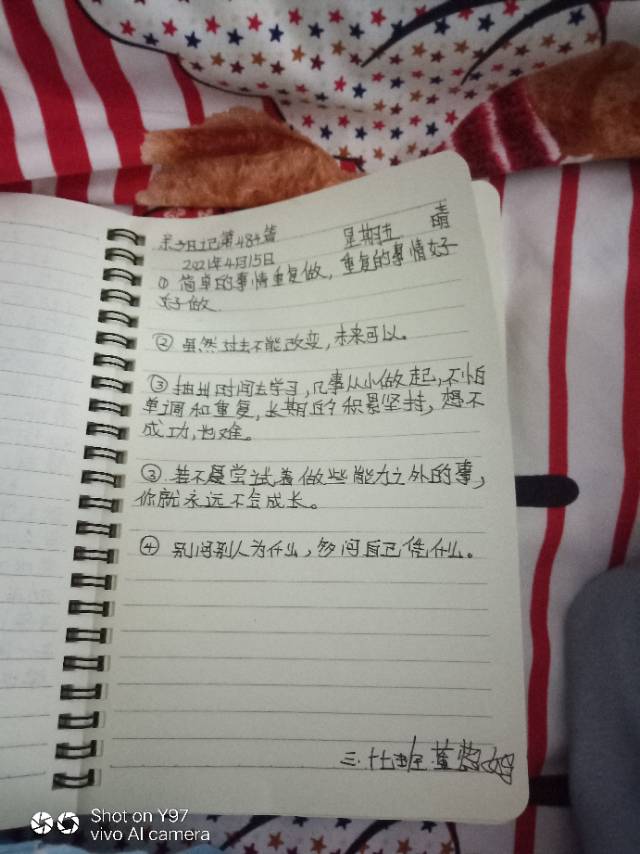 亲子日记第484篇 星期四 晴
2021年4月15日
① 简单的事情重复做,重复的事情好
好做
② 虽然过去不能改变,未来可以。
③ 抽出时间去学习,凡事从小做起,不怕
单调和重复,长期的积累坚持,想不
成功,也难。
③ 若不是尝试着做些能力之外的事,
你就永远不会成长。
④ 别问别人为什么,多问自己凭什么。
三.七班
Shot on Y97
vivo AI camera